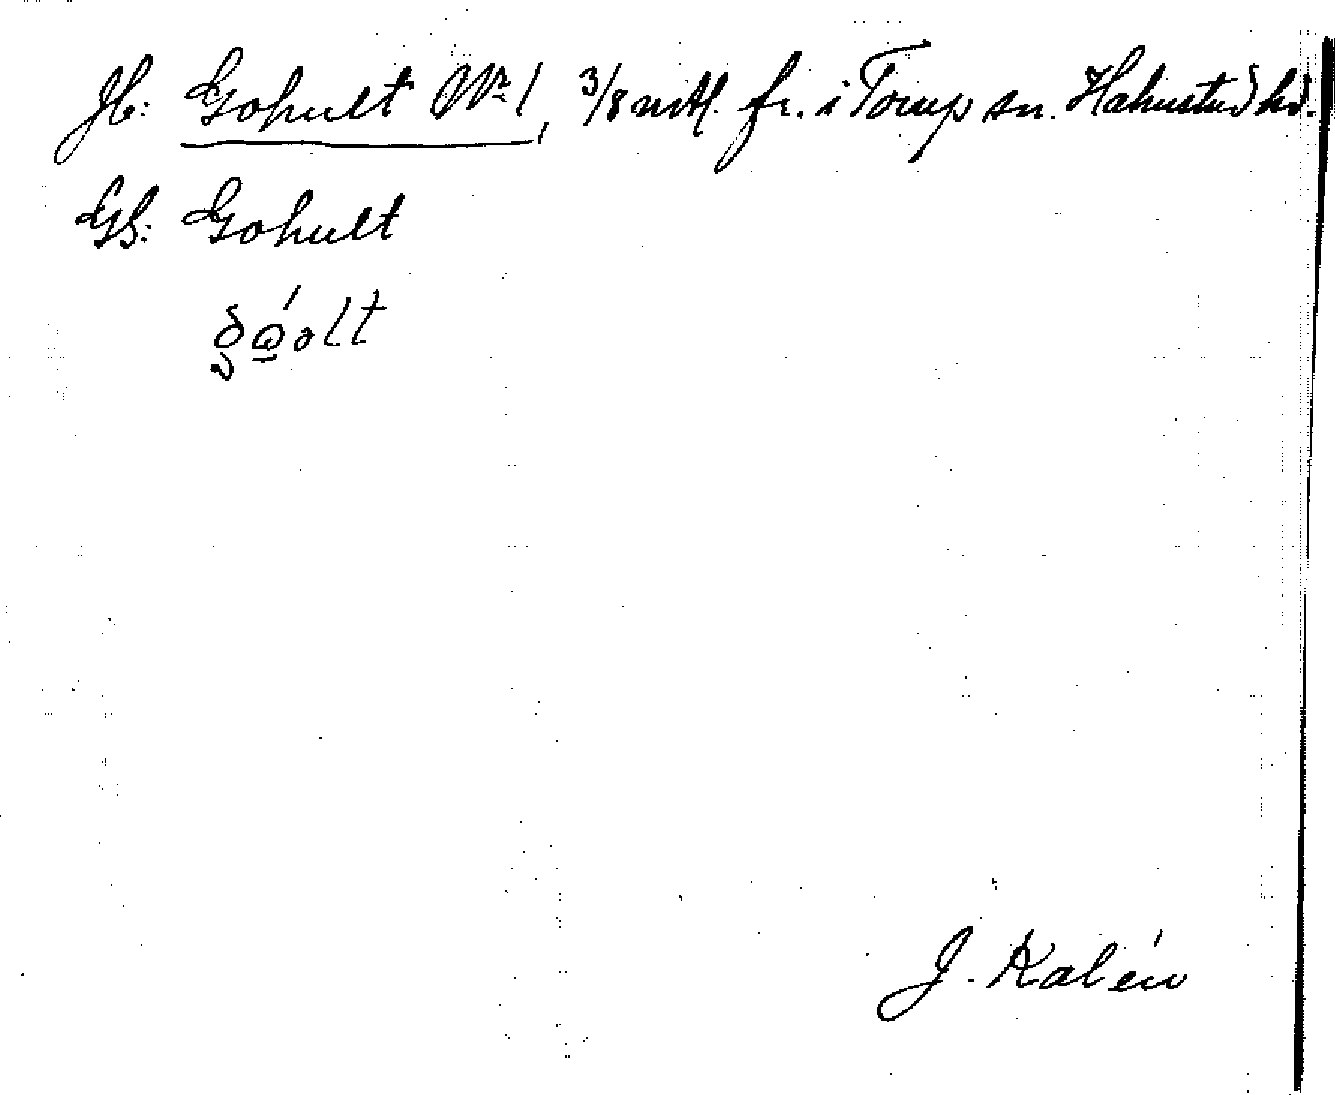 Jb: Gohult No 1, 3/8 mtl. fr. i Torup sn. Halmstad hd.
GS: Gohult
J. Kalén